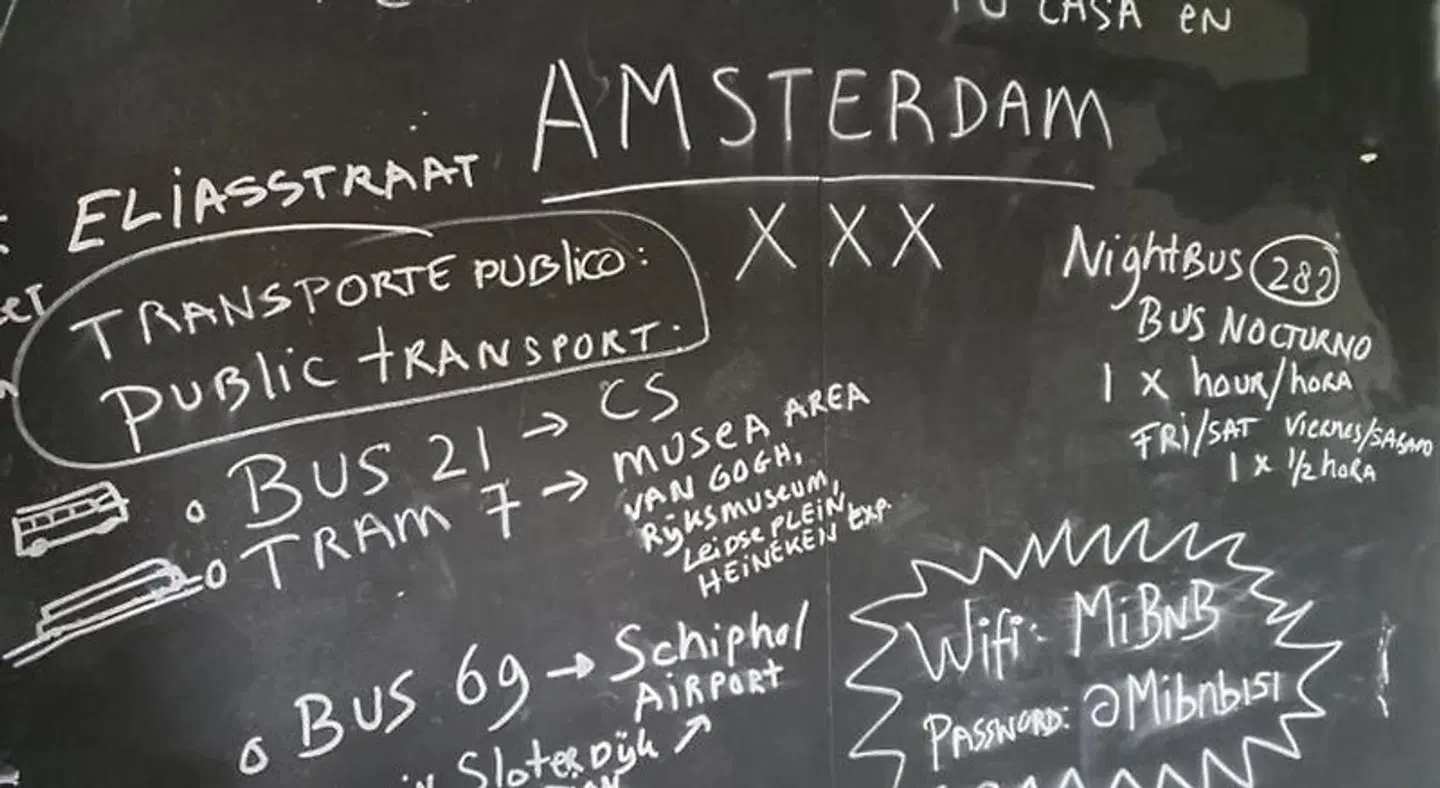 TU CASA EN
AMSTERDAM
XXX
ELIASSTRAAT
TRANSPORTE PUBLICO:
PUBLIC TRANSPORT:
BUS 21 → CS
TRAM 7 → MUSEA AREA
VAN GOGH,
RIJKSMUSEUM,
LEIDSEPLEIN,
HEINEKEN EXP.
BUS 69 → Schiphol
AIRPORT
Sloterdijk ↗
NightBUS 282
BUS NOCTURNO
1 x hour/hora
FRI/SAT Viernes/SABADO
1 x 1/2 hora
Wifi: MiBNB
PASSWORD: @Mibnb151